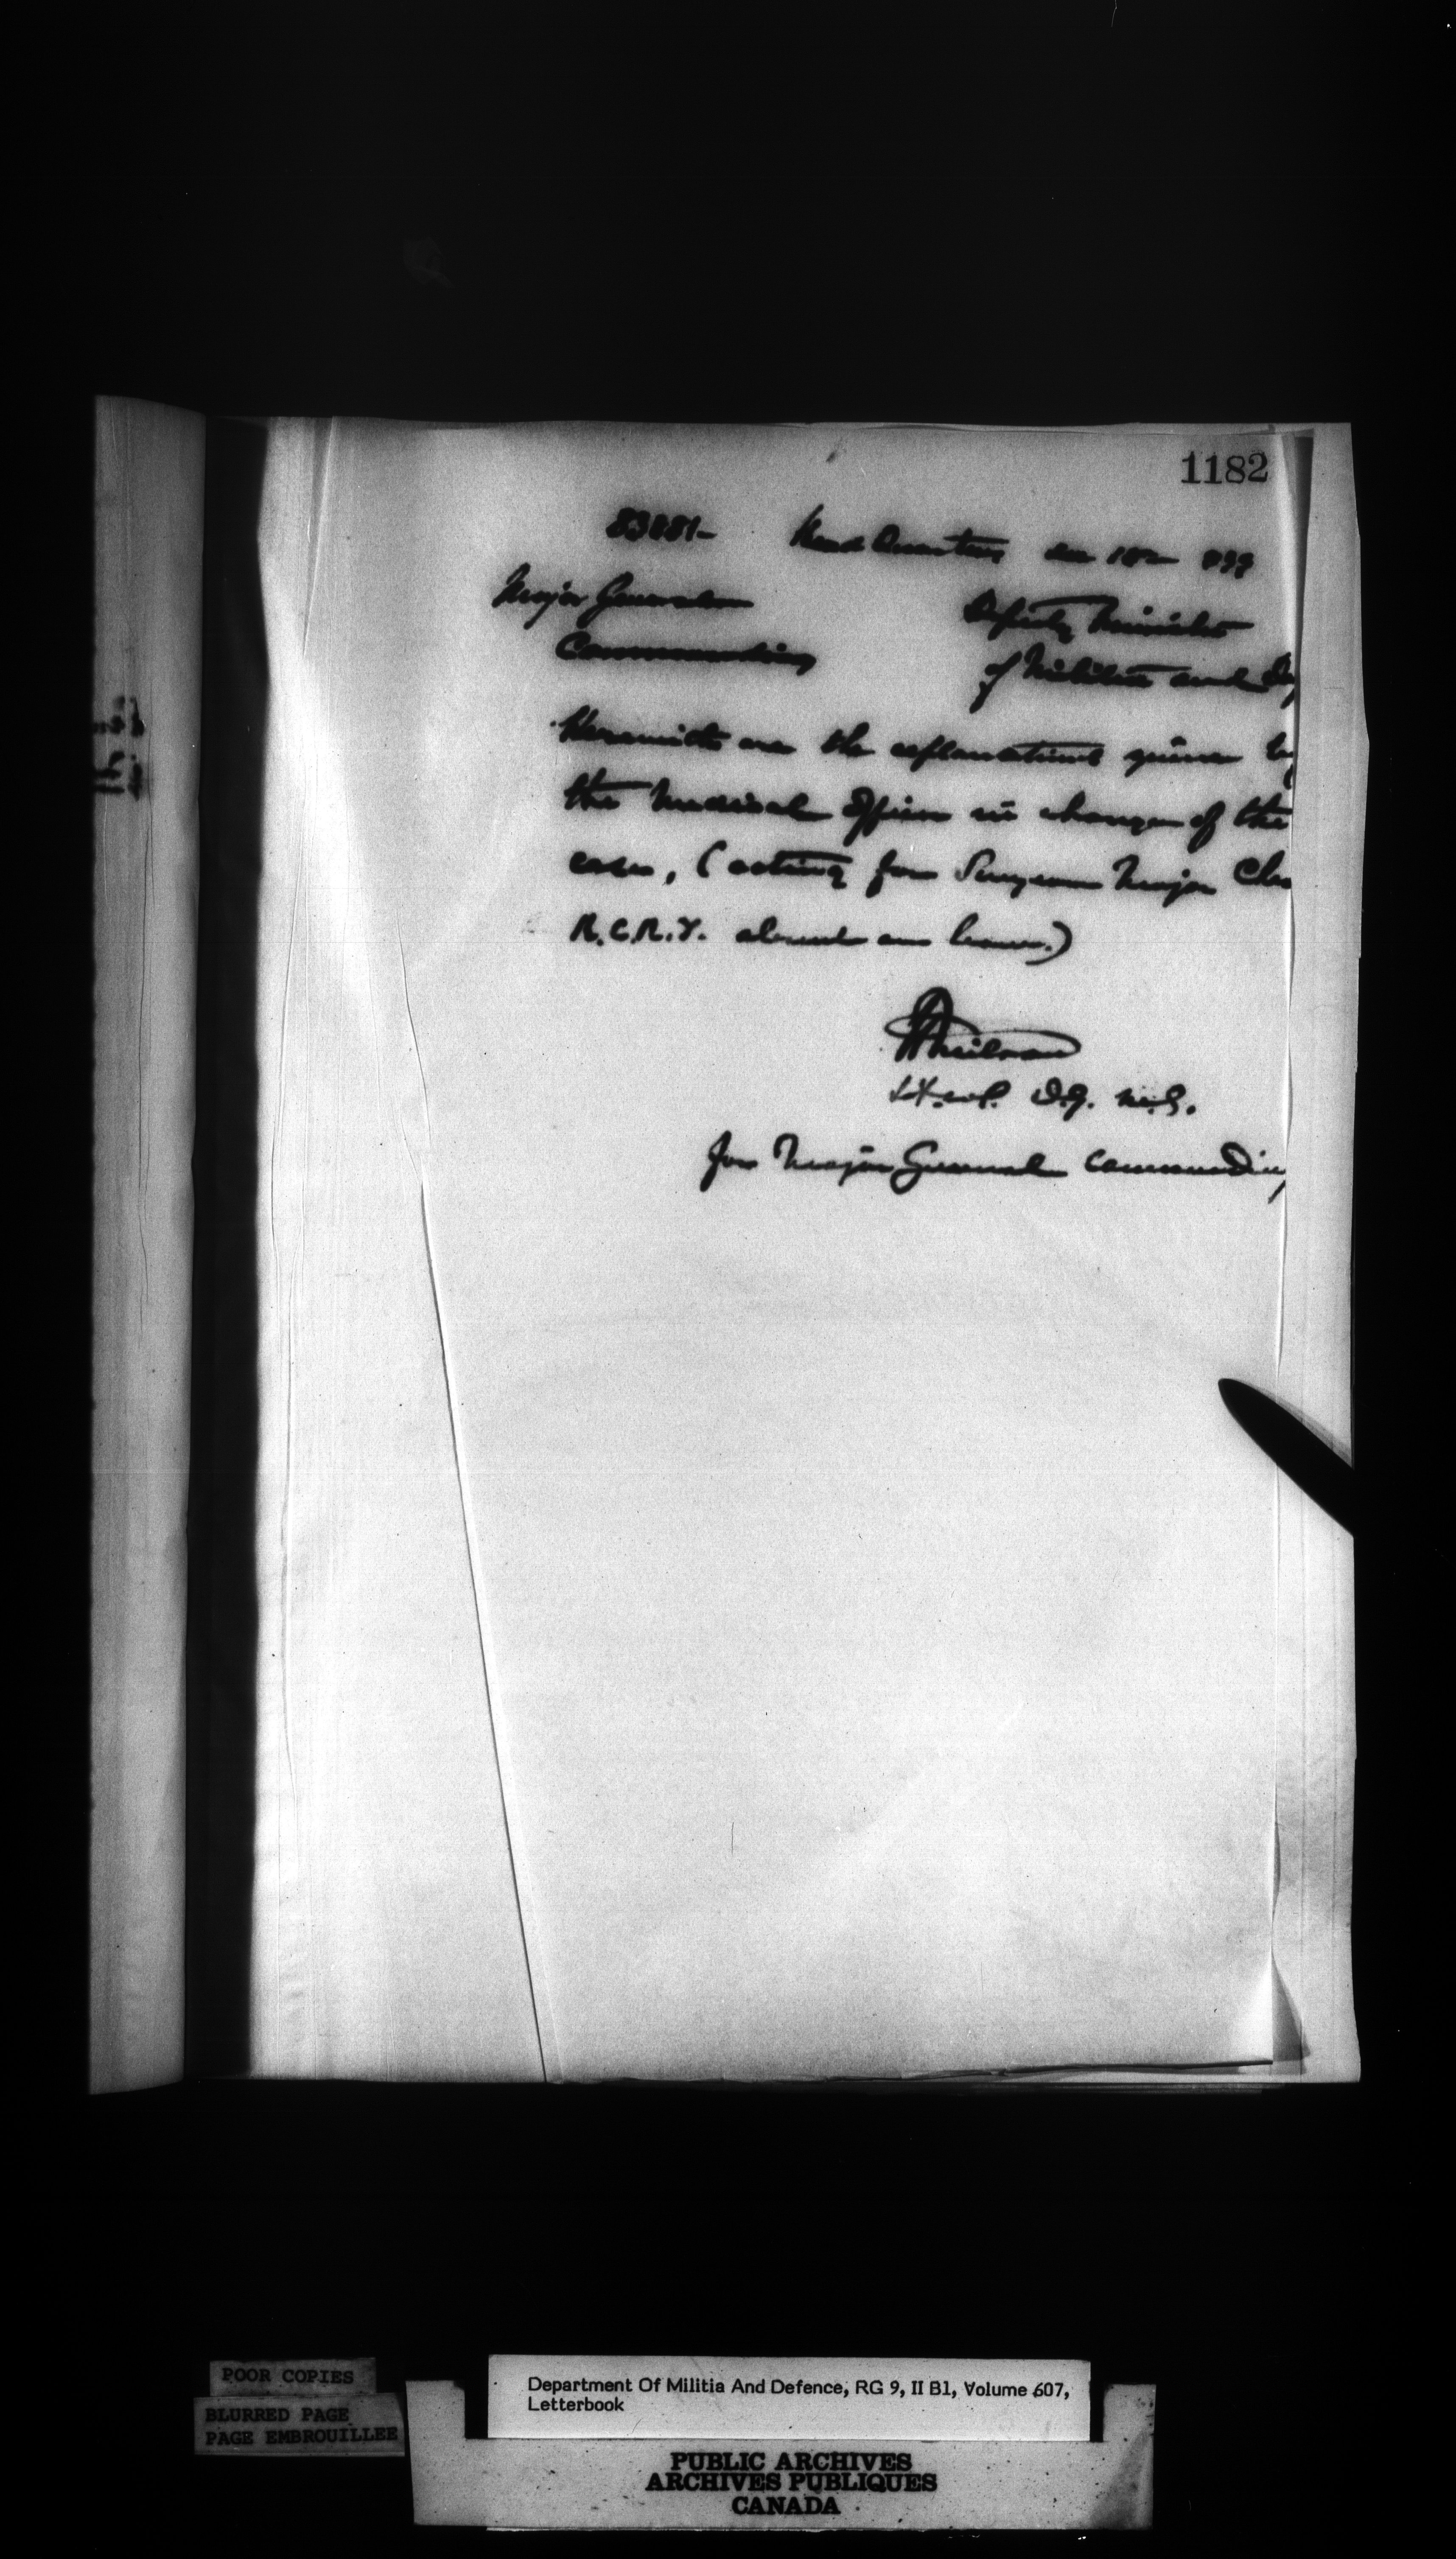 1182
83881- Head Quarters 189
Major General Deputy Minister
Commanding of Militia and De
Herewith are the explanations given by
the Medical Officer in charge of the
case, (acting for Surgeon Major
R.C.R.I. absent on leave.)
Neilson
Lt. Col. D.G. M.S.
for Major General Commanding
POOR COPIES
BLURRED PAGE
PAGE EMBROUILLEE
Department Of Militia And Defence, RG 9, II B1, Volume 607,
Letterbook
PUBLIC ARCHIVES
ARCHIVES PUBLIQUES
CANADA